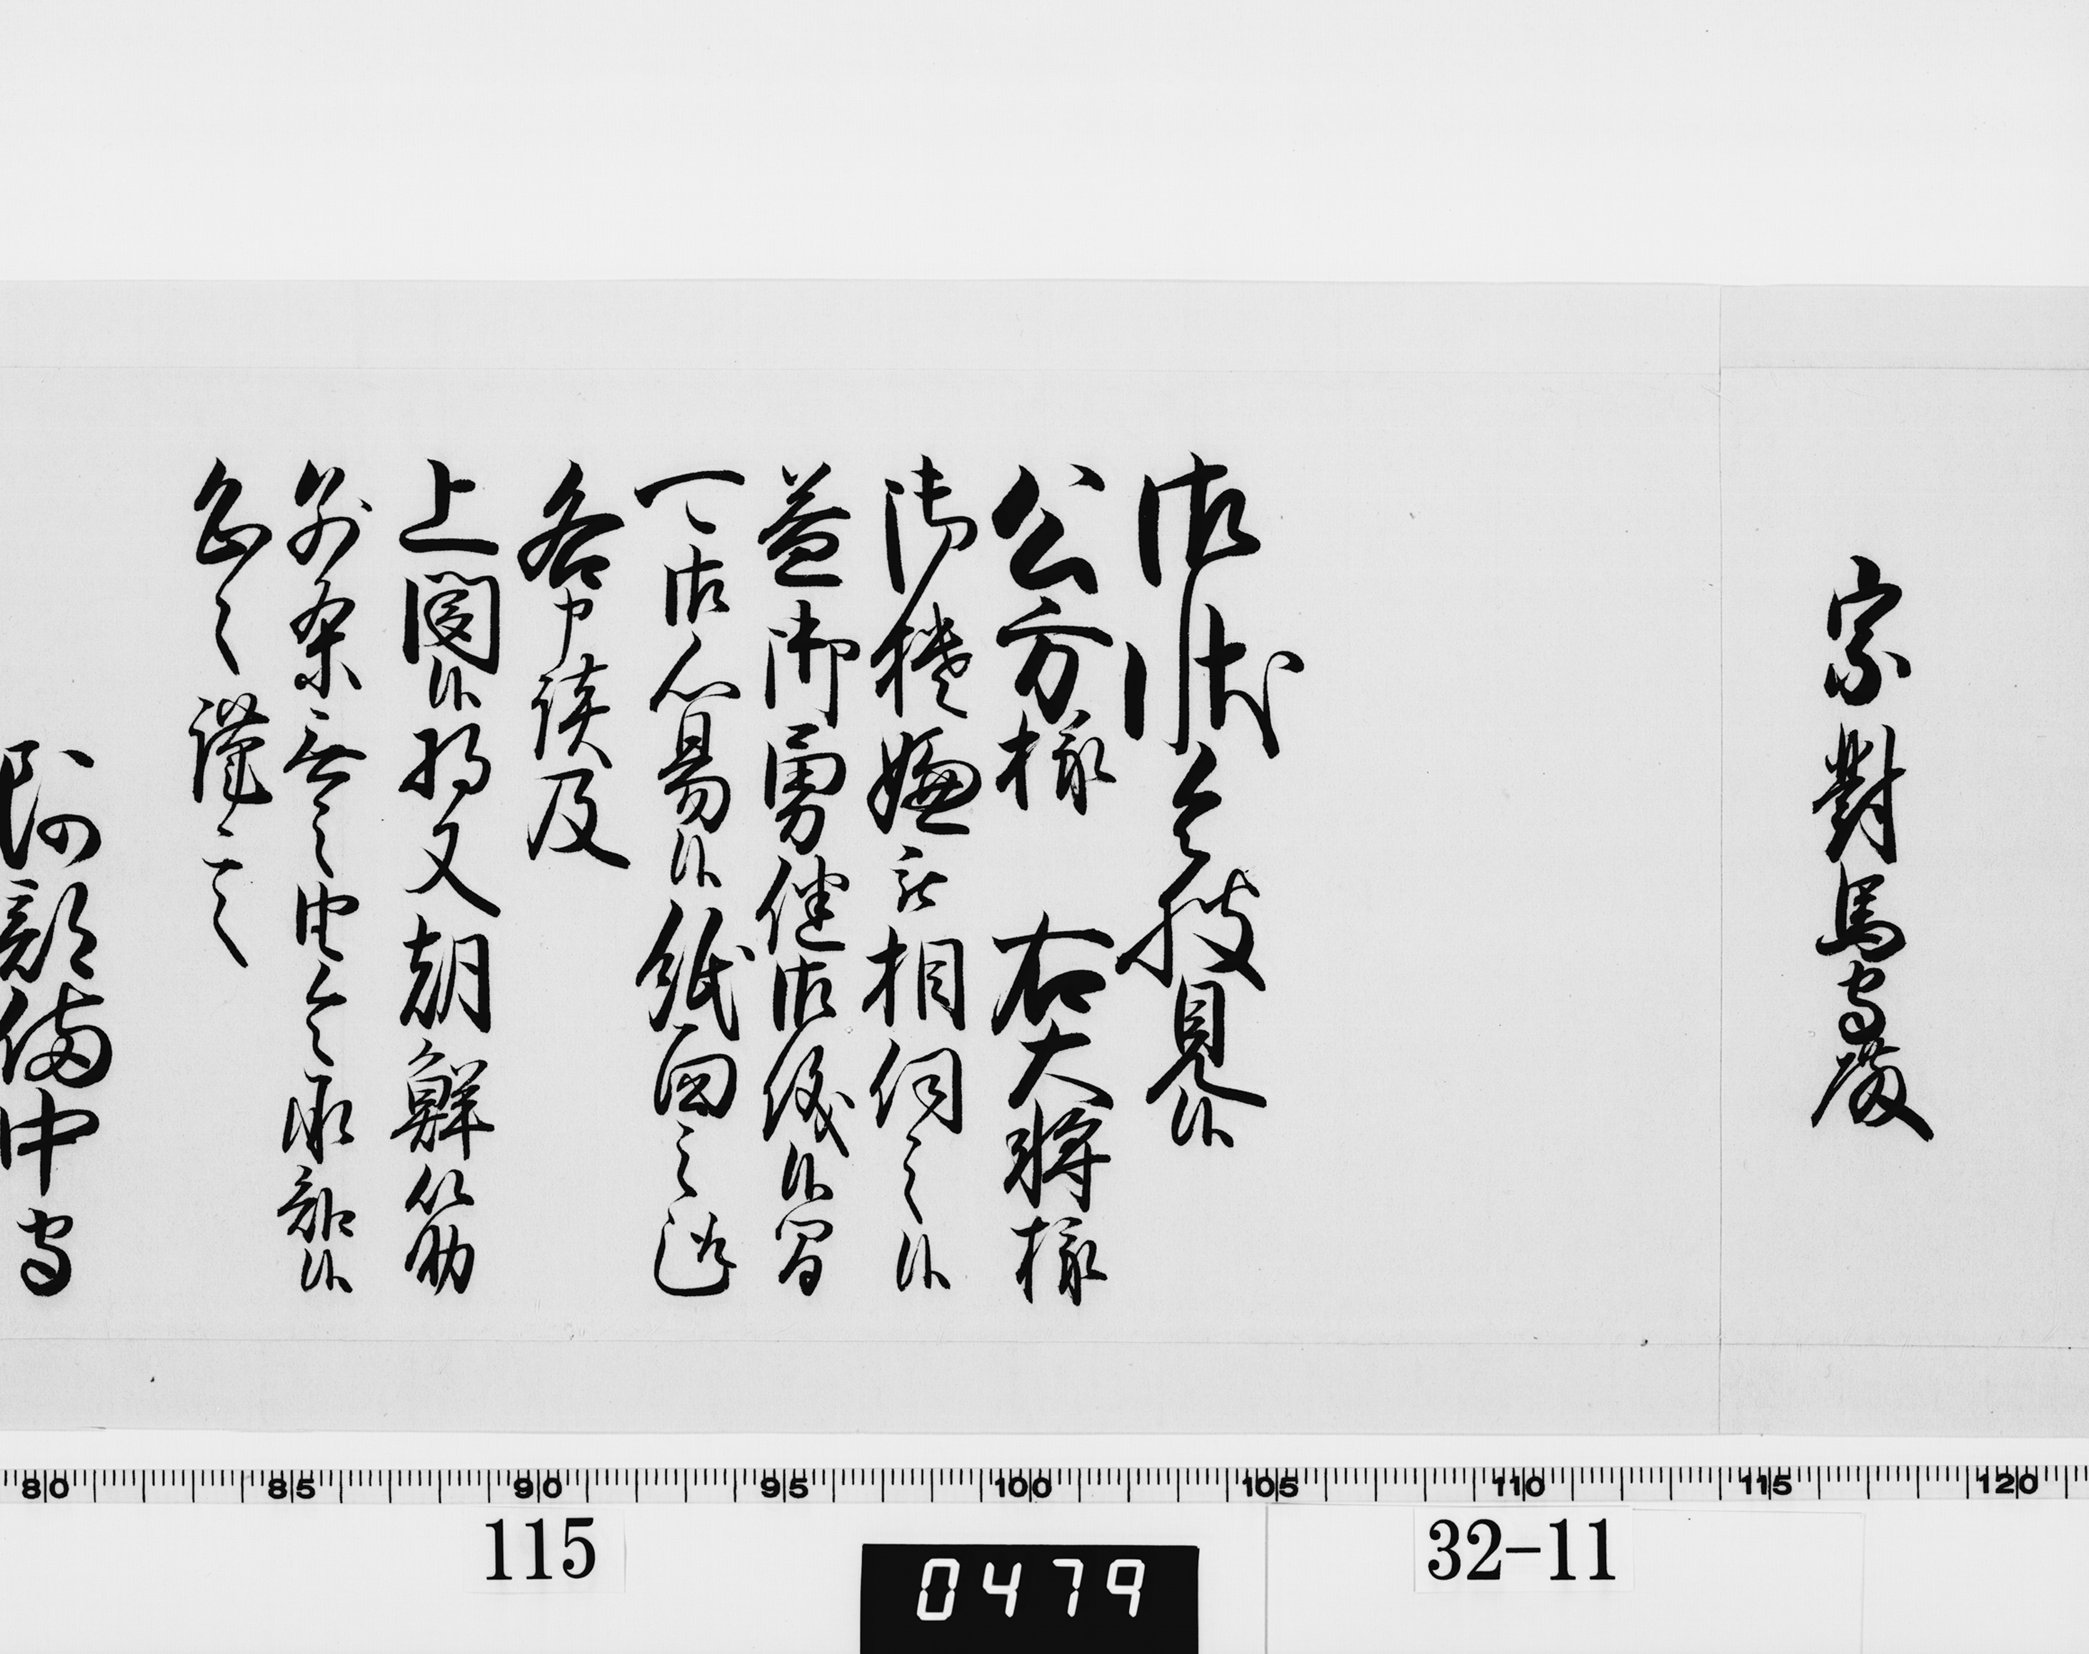 宗對馬守殿
御状令披見候
公方様　右大将様
御機嫌被相伺之候
益御勇健御儀候間
可御心易候紙面之趣
各申談及
上聞候将又朝鮮筋
別条無之由令承知候
恐々謹言
阿部備中守
80 85 90 95 100 105 110 115 120
115
0479
32-11